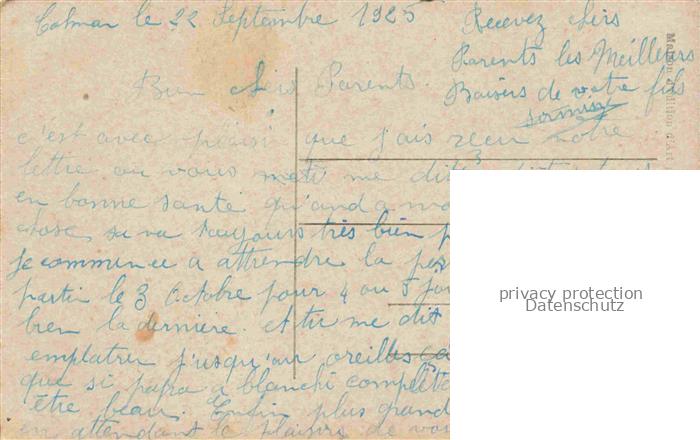 Colmar le 22 Septembre 1925
Recevez chers
Parents les Meilleurs
Baisers de votre fils
Bien chers Parents
c'est avec plaisir que j'ais reçu votre
lettre ou vous me dit
en bonne santé qu'and a mo
chose sa va toujours très bien p
je commence a attendre la per
partir le 3 octobre pour 4 ou 5 jou
bien la dernière. et tu me dit
emplatrer j'usqu'au oreilles
que si papa a blanchi complète
être beau. Enfin plus grand
en attendant le plaisir de vou
privacy protection
Datenschutz